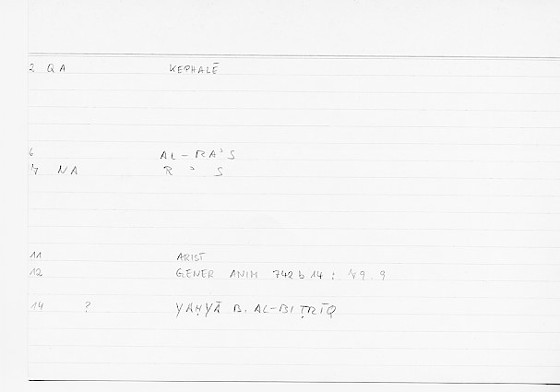 2 QA KEPHALĒ
6 AL-RAʾS
7 NA R ʾ S
11 ARIST
12 GENER ANIM 742 b 14 : 49. 9
14 ? YAḤYĀ B. AL-BIṬRĪQ